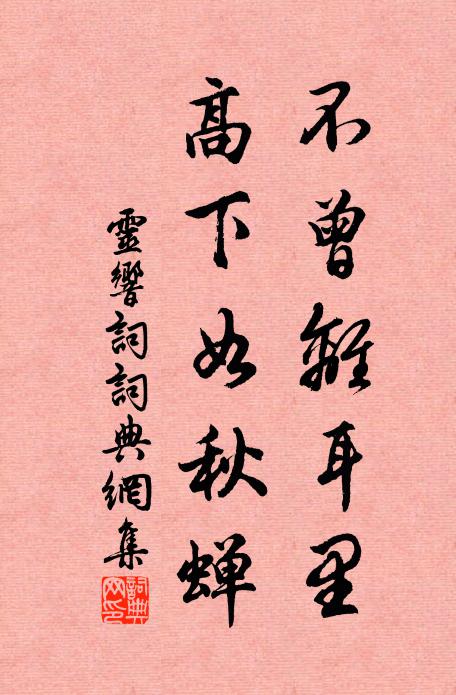 不曾離耳里
高下如秋蝉
靈響詞詞典網集
詞典網印